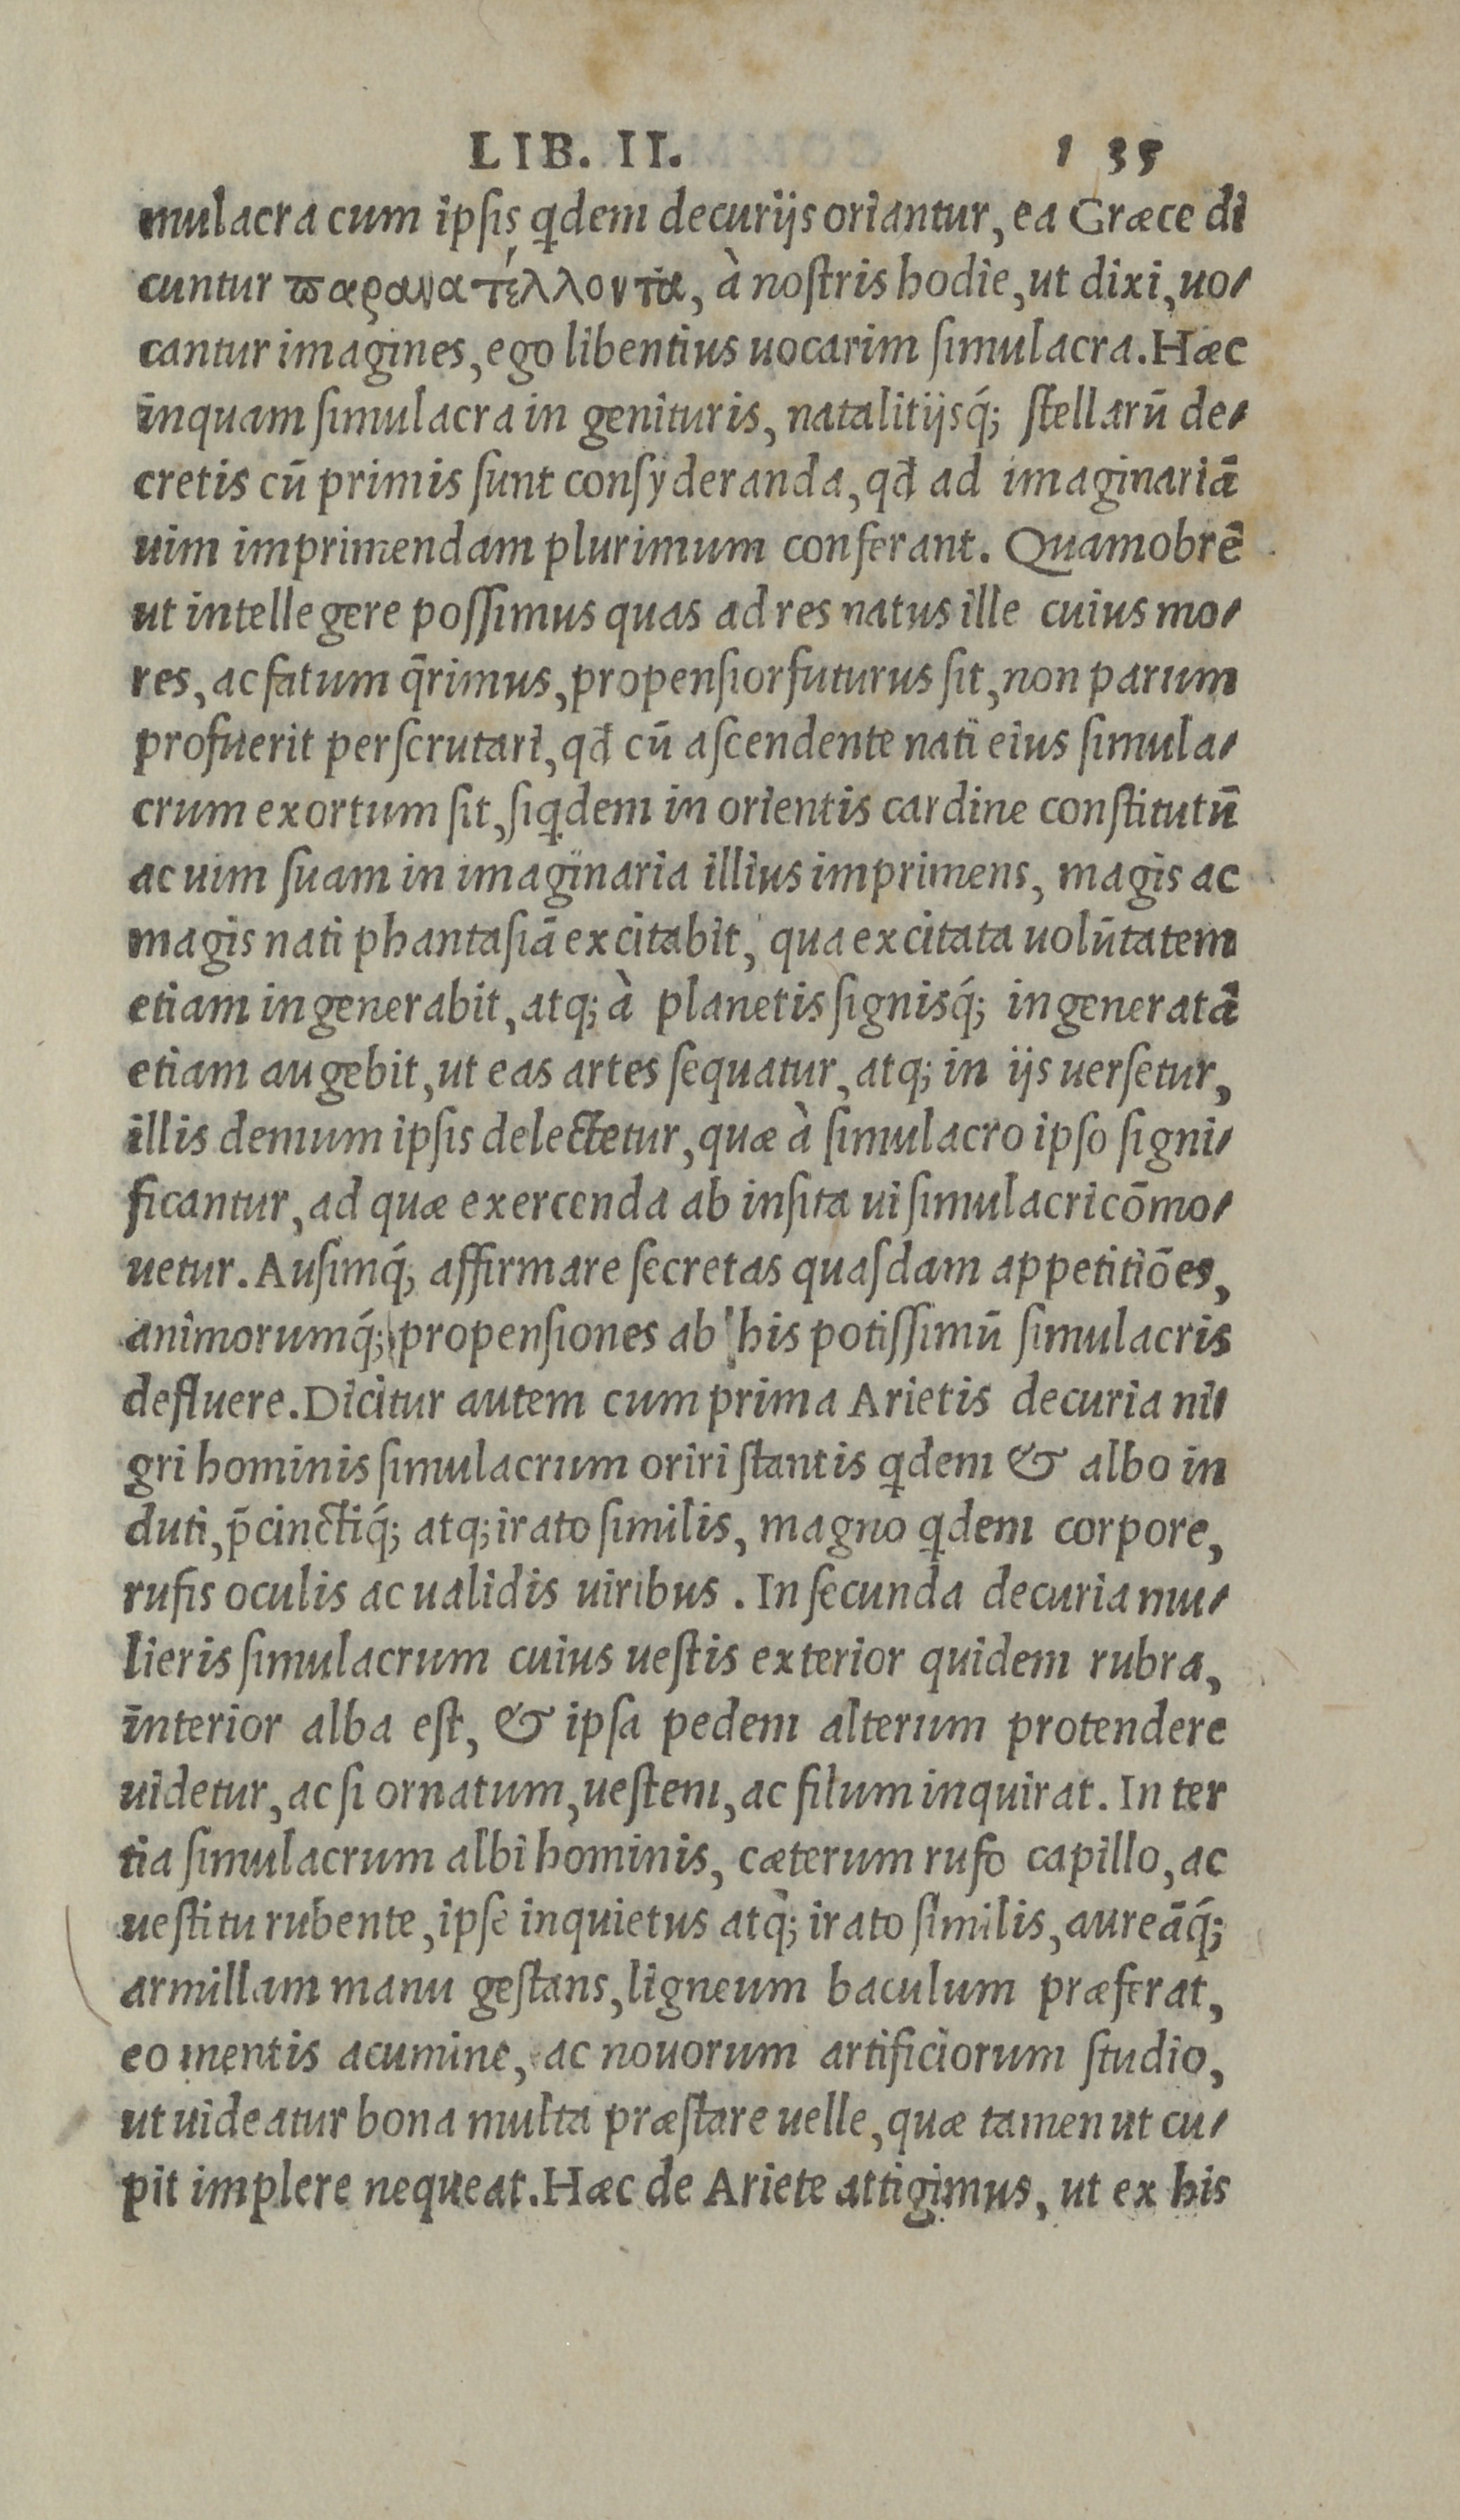 LIB. II. 135
mulacra cum ipſis ꝗdem decurijs oriantur, ea Græce di
cuntur ϖαρανατέλλοντα, à noſtris hodie, ut dixi, uo-
cantur imagines, ego libentius uocarim ſimulacra. Hæc
inquam ſimulacra in genituris, natalitijsq́; ſtellarū de-
cretis cū primis ſunt conſyderanda, qđ ad imaginariā
uim imprimendam plurimum conferant. Quamobrē
ut intellegere poſſimus quas ad res natus ille cuius mo-
res, ac fatum q̄rimus, propenſior futurus ſit, non parum
profuerit perſcrutari, qđ cū aſcendente nati eius ſimula-
crum exortum ſit, ſiꝗdem in orientis cardine conſtitutū
ac uim ſuam in imaginaria illius imprimens, magis ac
magis nati phantaſiā excitabit, qua excitata uolūtatem
etiam ingenerabit, atq; à planetis ſignisq́; ingeneratā
etiam augebit, ut eas artes ſequatur, atq; in ijs uerſetur,
illis demum ipſis delectetur, quæ à ſimulacro ipſo ſigni-
ficantur, ad quæ exercenda ab inſita ui ſimulacri cōmo-
uetur. Auſimq́; affirmare ſecretas quaſdam appetitiōes,
animorumq́; propenſiones ab his potiſſimū ſimulacris
defluere. Dicitur autem cum prima Arietis decuria ni-
gri hominis ſimulacrum oriri ſtantis ꝗdem & albo in
duti, p̄cinctiq́; atq; irato ſimilis, magno ꝗdem corpore,
rufis oculis ac ualidis uiribus. In ſecunda decuria mu-
lieris ſimulacrum cuius ueſtis exterior quidem rubra,
interior alba eſt, & ipſa pedem alterum protendere
uidetur, ac ſi ornatum, ueſtem, ac filum inquirat. In ter
tia ſimulacrum albi hominis, cæterum rufo capillo, ac
ueſtitu rubente, ipſe inquietus atq; irato ſimilis, aureāq́;
armillam manu geſtans, ligneum baculum præferat,
eo mentis acumine, ac nouorum artificiorum ſtudio,
ut uideatur bona multa præſtare uelle, quæ tamen ut cu-
pit implere nequeat. Hæc de Ariete attigimus, ut ex his